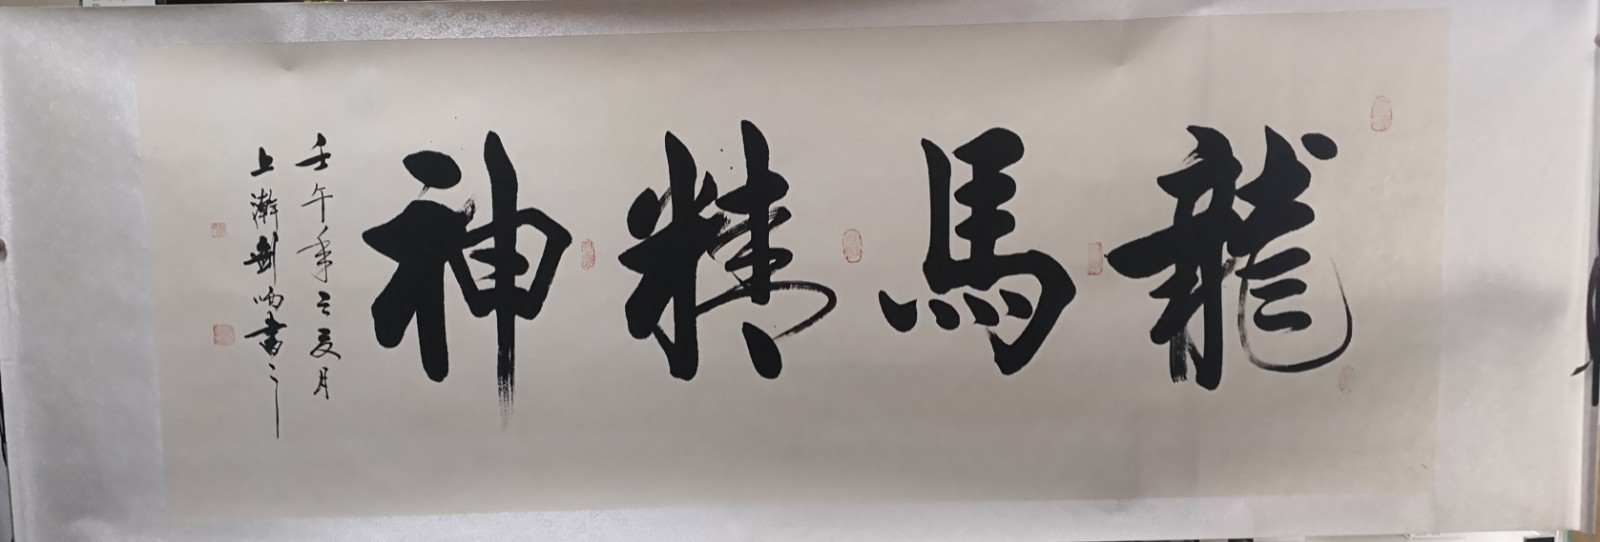 龍馬精神
壬午年之夏月
上澣劍鳴書之